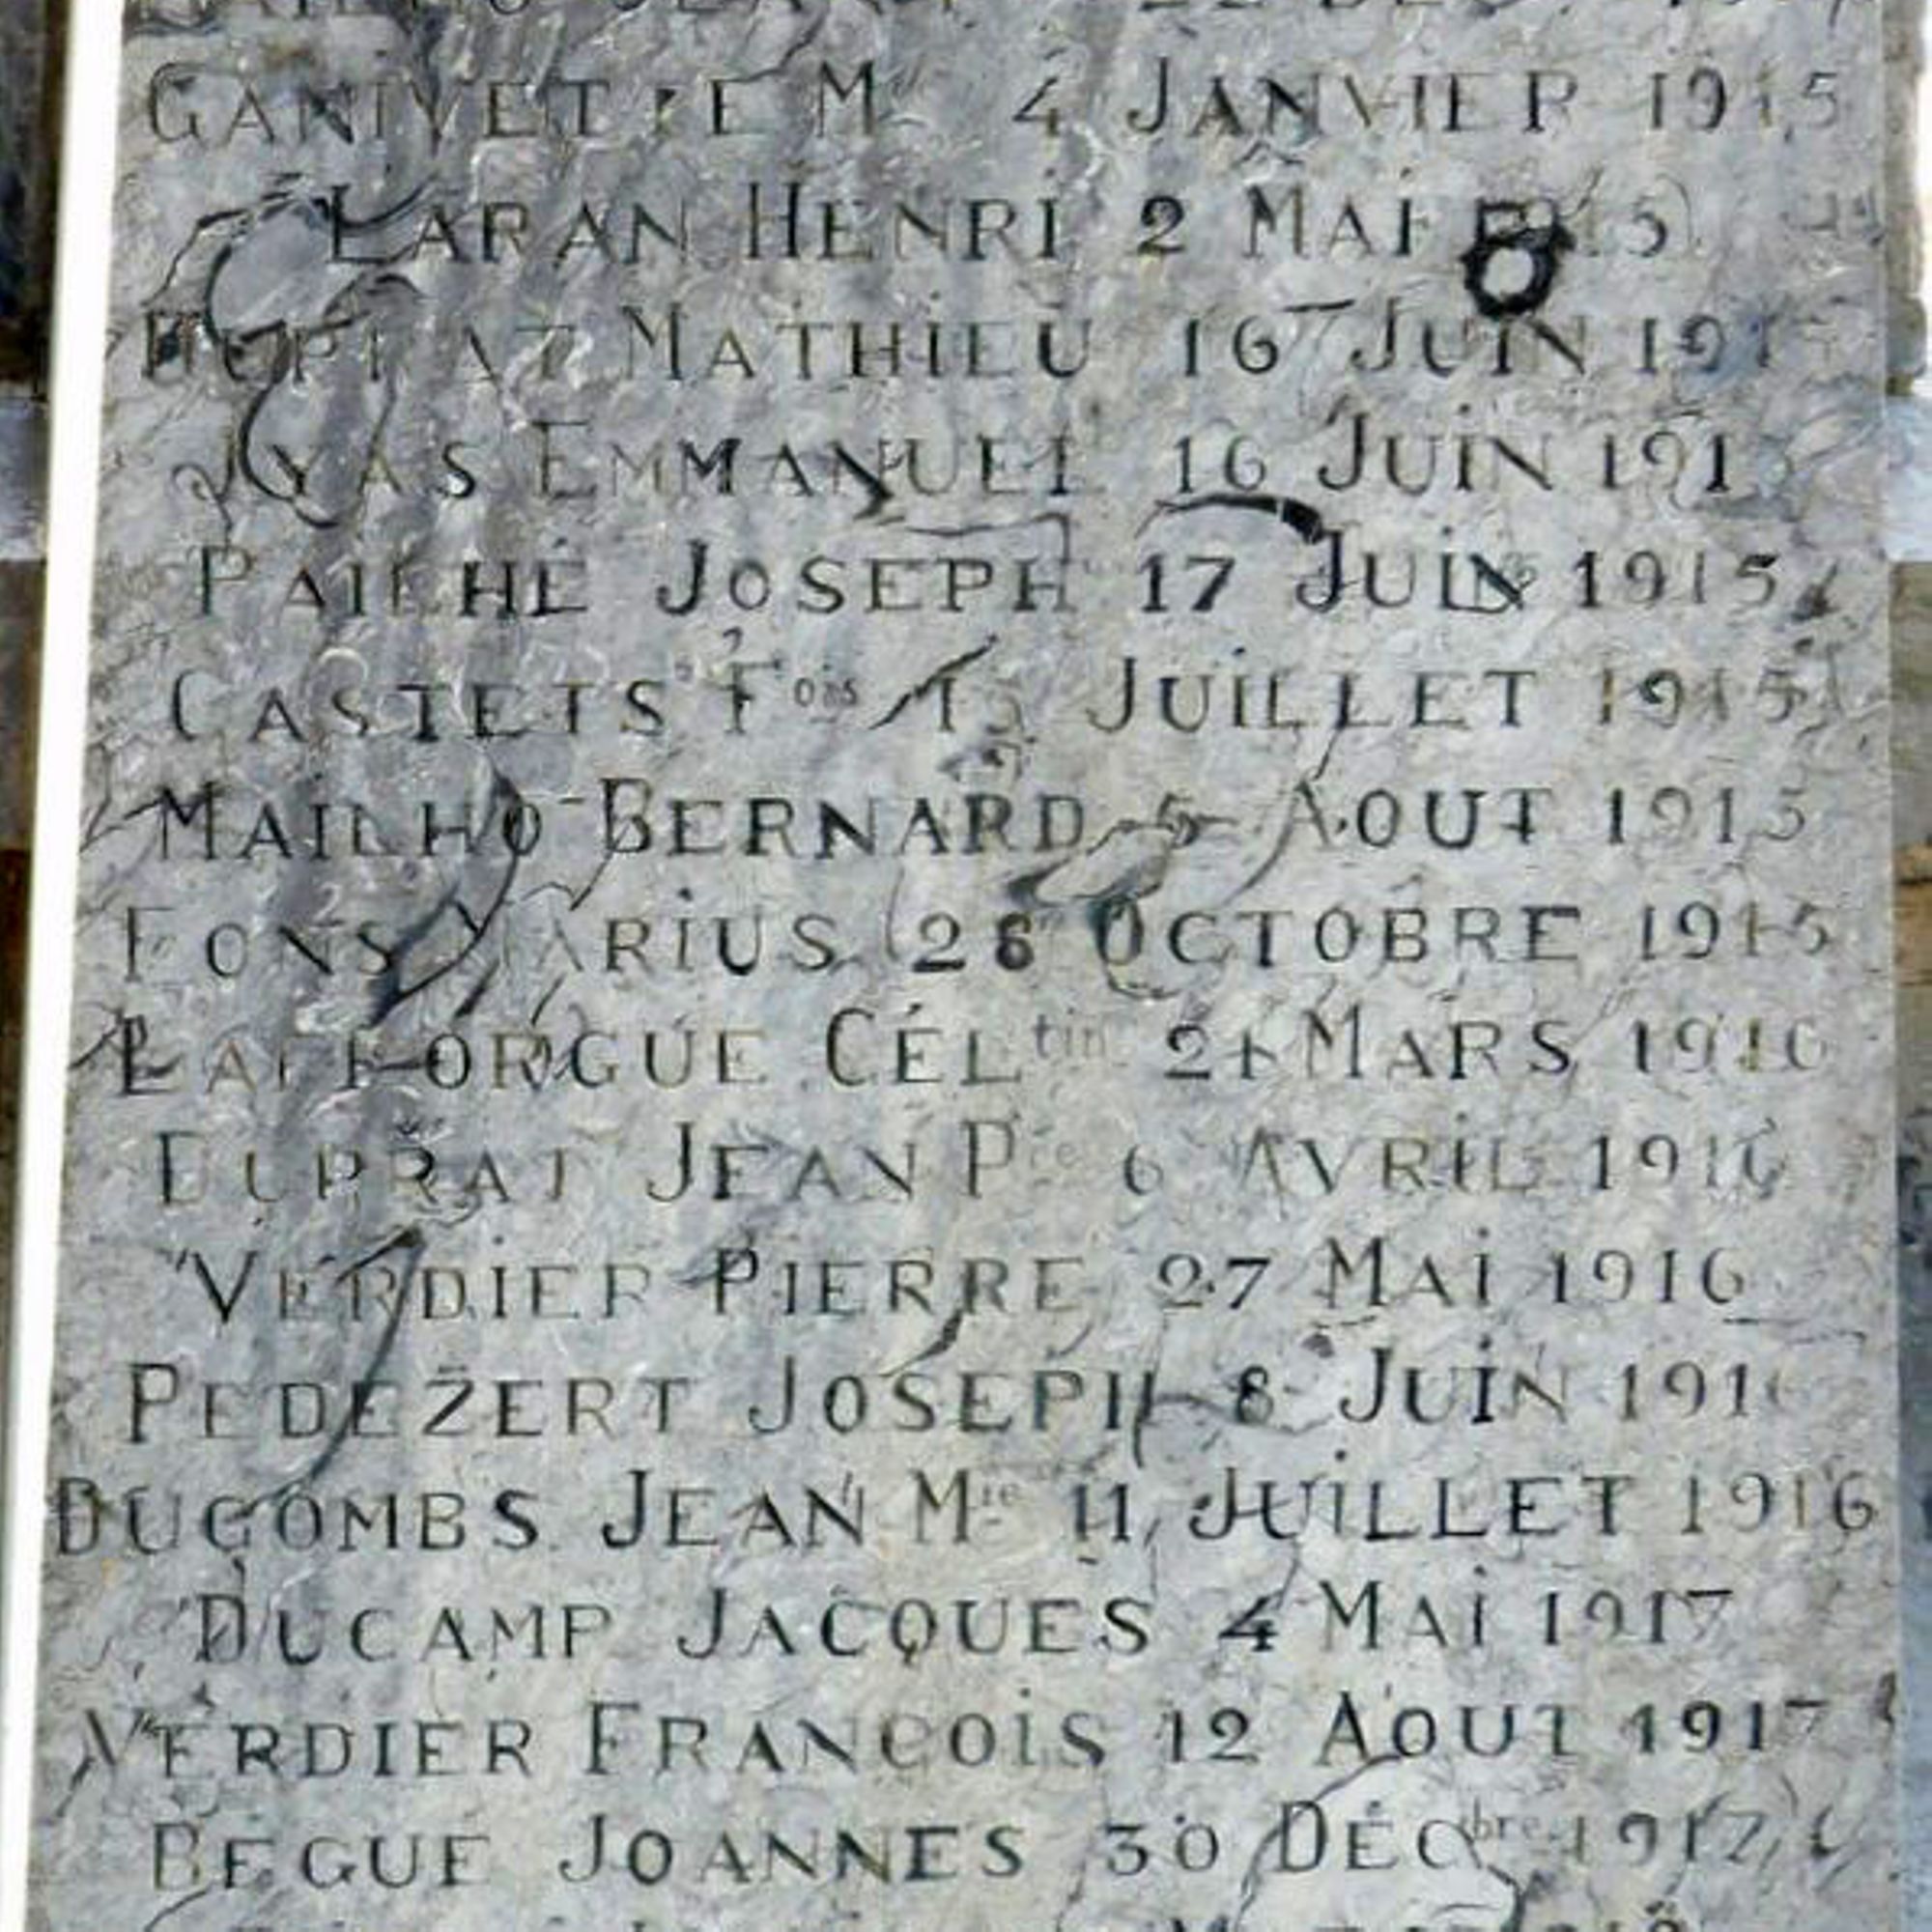 22 DÉC
GANIVET E M 4 JANVIER 1915
LARAN HENRI 2 MAI 1915
MATHIEU 16 JUIN 191
EMMANUEL 16 JUIN 191
PAILHÉ JOSEPH 17 JUIN 1915
CASTETS Fois 13 JUILLET 1915
MAILHO BERNARD 5 AOUT 1915
FONS MARIUS 26 OCTOBRE 1915
LAFFORGUE CÉLtin 21 MARS 1916
DUPRAT JEAN Pre 6 AVRIL 1916
VERDIER PIERRE 27 MAI 1916
PEDEZERT JOSEPH 8 JUIN 1916
DUCOMBS JEAN Mie 11 JUILLET 1916
DUCAMP JACQUES 4 MAI 1917
VERDIER FRANCOIS 12 AOUT 1917
BÉGUÉ JOANNES 30 DÉCbre 1917